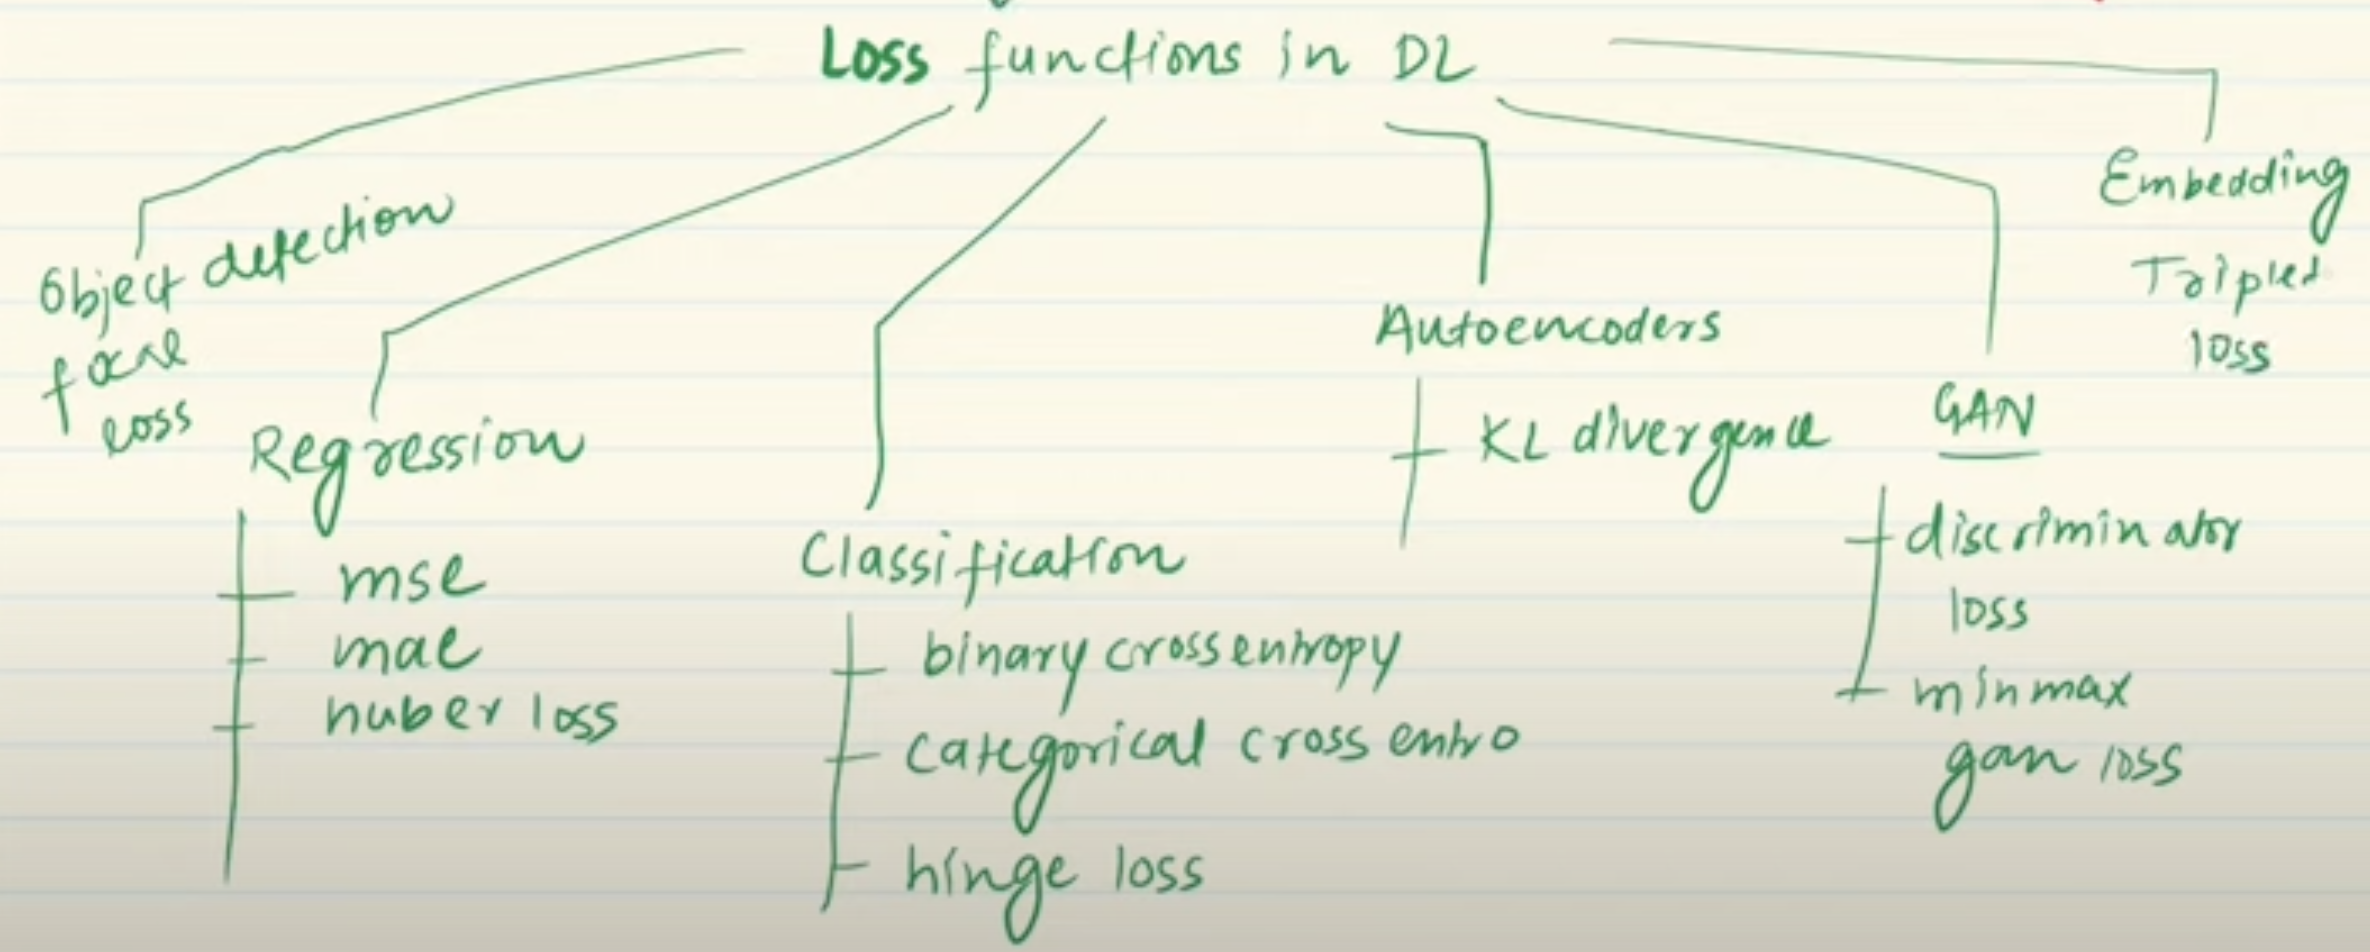 Loss functions in DL
Object detection
focal
loss
Regression
mse
mae
huber loss
Classification
binary crossentropy
categorical cross entro
hinge loss
Autoencoders
KL divergence
GAN
discriminator
loss
minmax
gan loss
Embedding
Triplet
loss